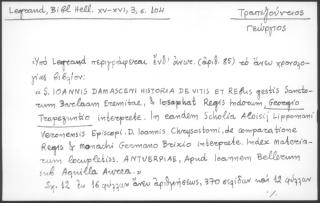 Legrand, Bibl Hell. XV-XVI, 3, σ. 104
Τραπεζούντιος
Γεώργιος
Ὑπὸ Legrand περιγράφεται ἐνθ' ἄνωτ. (ἀριθ. 85) τὸ ἄνω χρονολο-
γίας βιβλίον:
« S. IOANNIS DAMASCENI HISTORIA DE VITIS ET REBUS gestis Sancto-
rum Barlaam Eremitae, & Iosaphat Regis Indorum, Georgio
Trapezuntio interprete. In eandem Scholia Aloisij Lippomani
Veronensis Episcopi. D. Ioannis Chrysostomi, de comparatione
Regis & Monachi Germano Brixio interprete. Index materia-
rum locupletiss. ANTUERPIAE, Apud Ioannem Bellerum
sub Aquilla Aurea.»
Σχ. 12 ἐν 16 φύλλων ἄνευ ἀριθμήσεως, 370 σελίδων καὶ 12 φύλλων
·/.